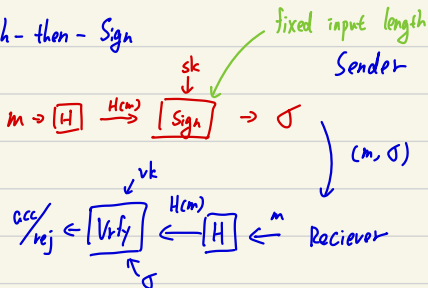 h-then-Sign
fixed input length
Sender
sk
m → H H(m) → Sign → σ
(m, σ)
vk
acc/rej ← Vrfy H(m) ← H ← m Reciever
σ